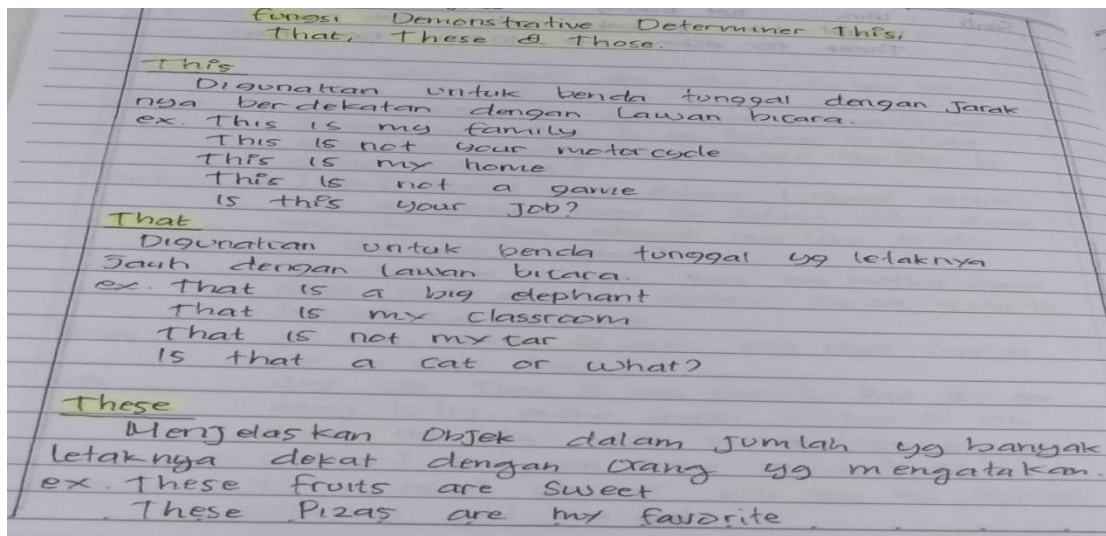 Fungsi Demonstrative Determiner This,
That, These & Those.
This
Digunakan untuk benda tunggal dengan Jarak
nya berdekatan dengan Lawan bicara.
ex. This is my family
This is not your motorcycle
This is my home
This is not a game
Is this your Job?
That
Digunakan untuk benda tunggal yg letaknya
Jauh dengan Lawan bicara.
ex. That is a big elephant
That is my classroom
That is not my car
Is that a cat or what?
These
Menjelaskan Objek dalam Jumlah yg banyak
Letaknya dekat dengan Orang yg mengatakan.
ex. These fruits are sweet
These Pizas are my favorite